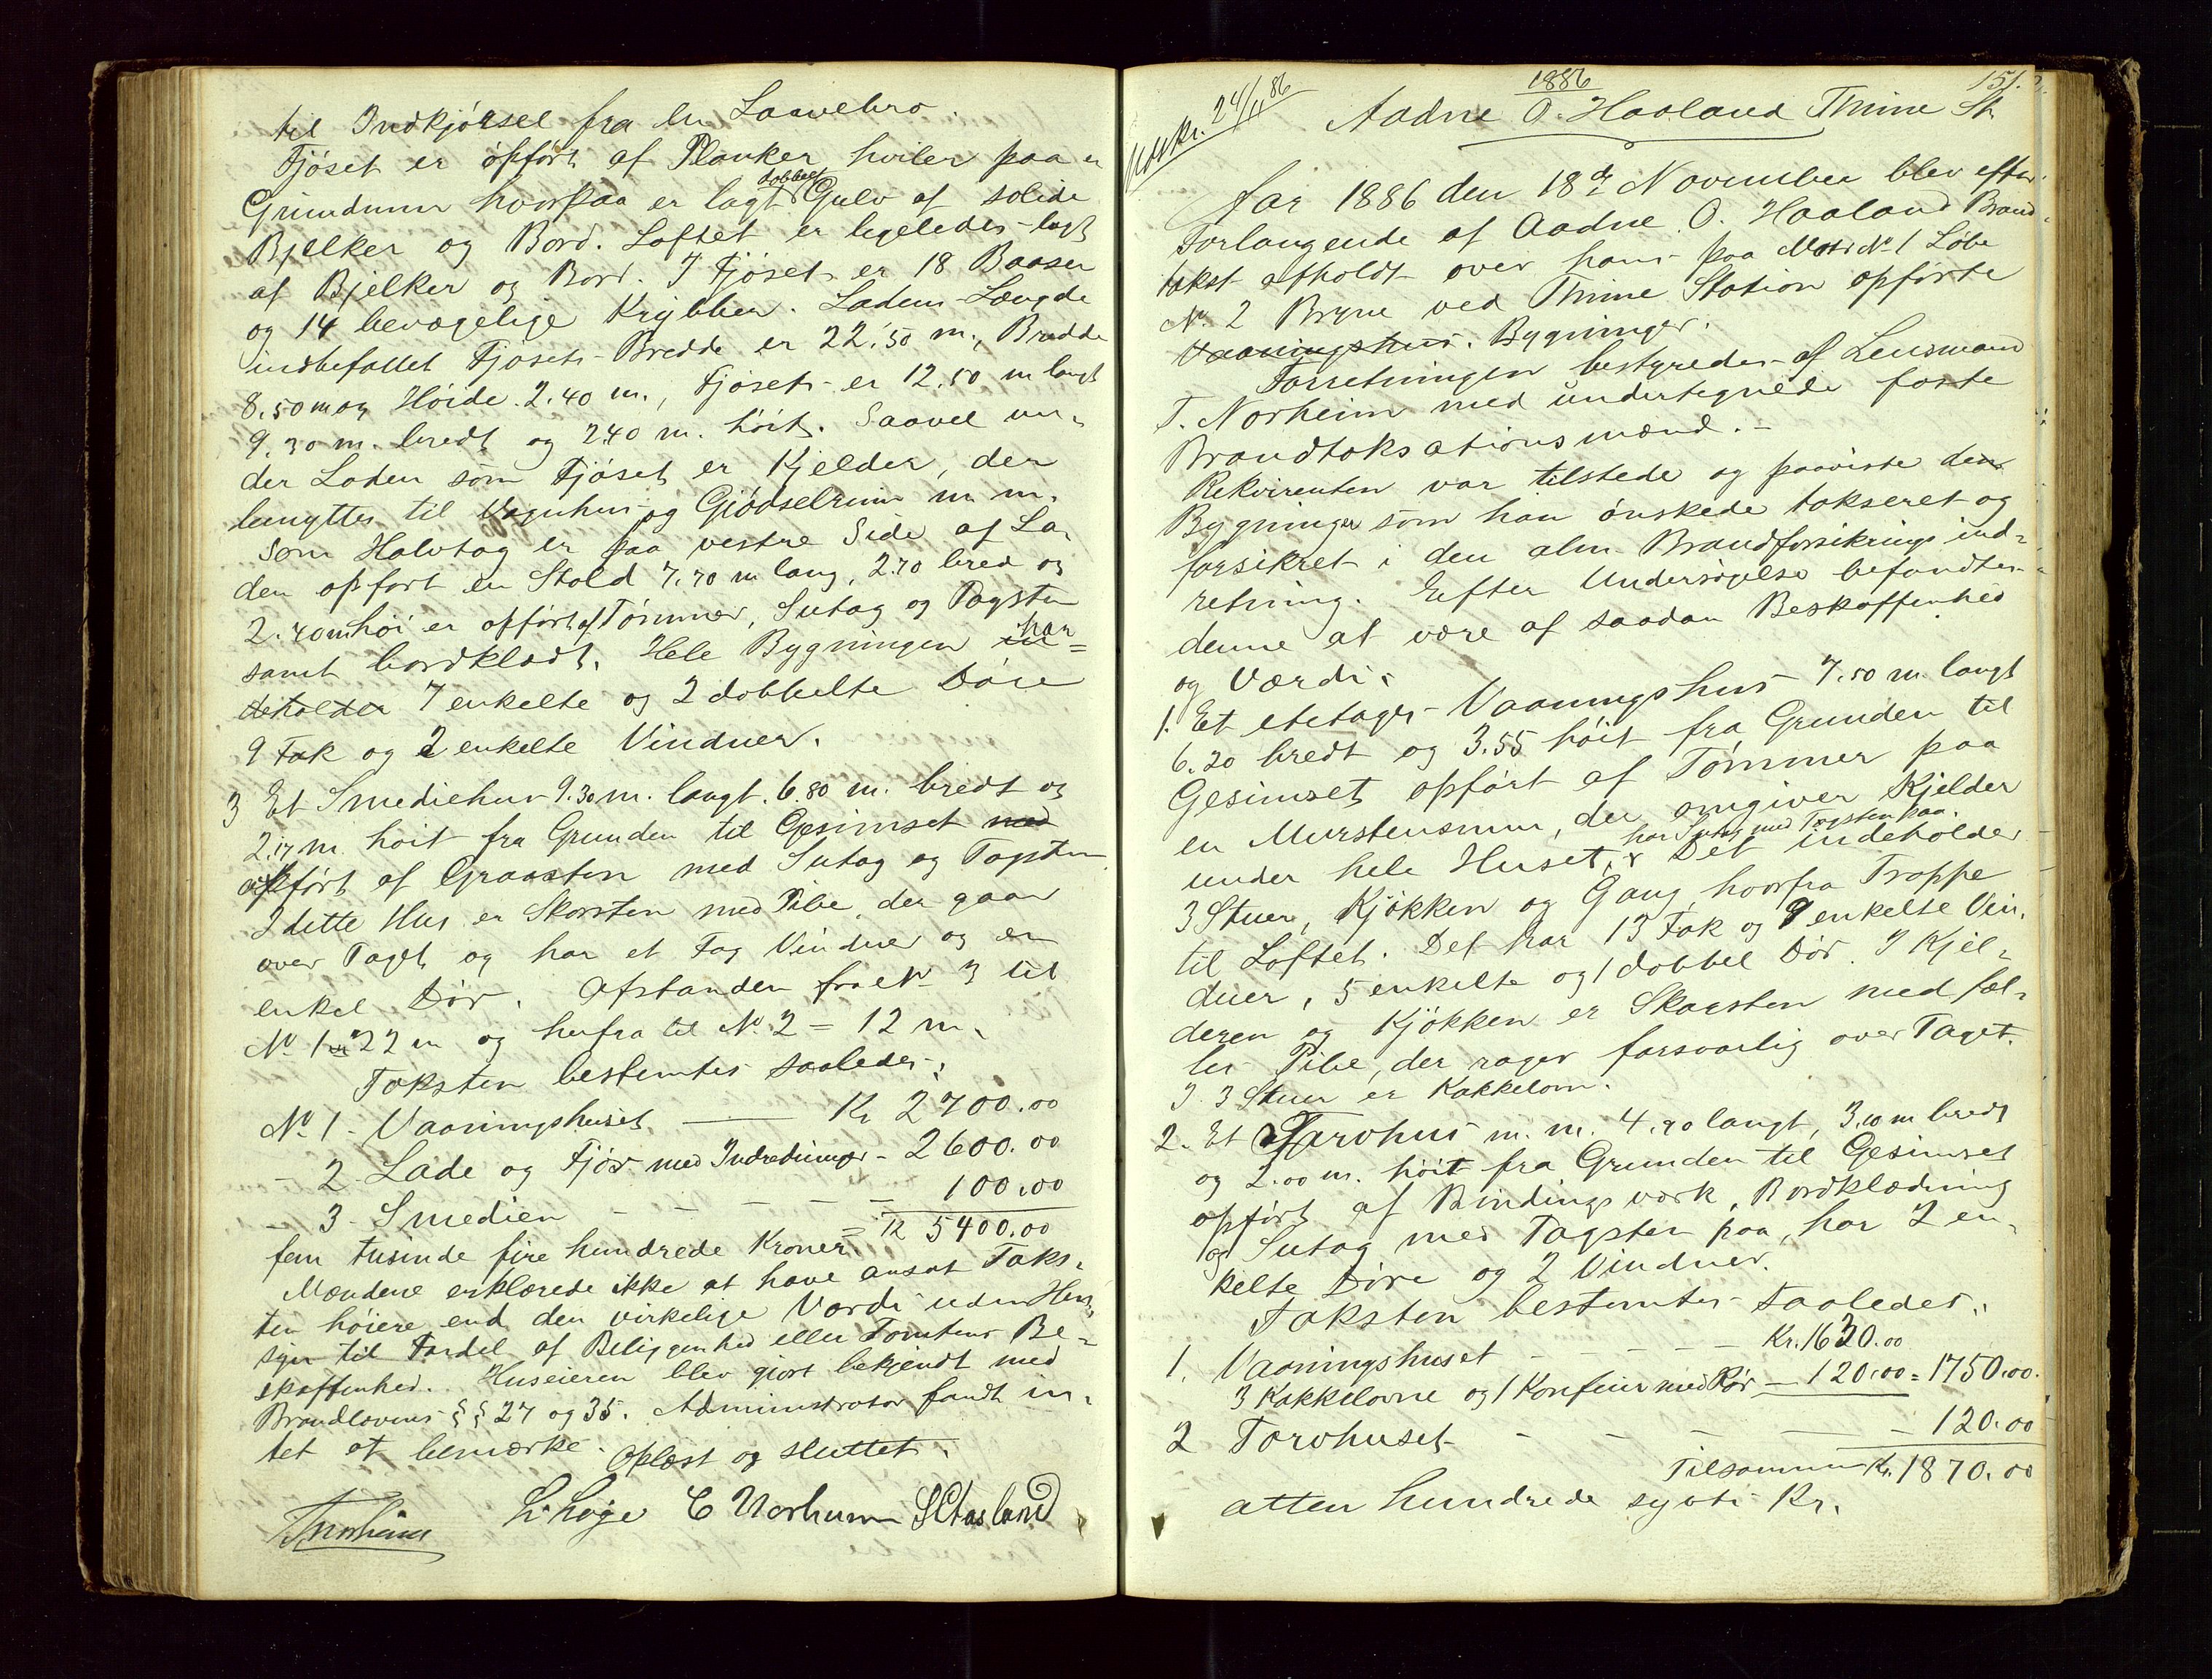 til Indkjørsel fra en Laavebro.
Fjøset er opført af Planker, hviler paa en
Grundmur hvorpaa er lagt dobbelt Gulv af solide
Bjelker og Bord. Loftet er ligeledes lagt
af Bjelker og Bord. I Fjøset er 18 Baaser
og 14 bevægelige Krybber. Ladens Længde
indbefattet Fjøsets Bredde er 22.50 m., Bredde
8.50 m og Høide 2.40 m., Fjøset er 12.50 m langt
9.30 m. bredt og 2.40 m. høit. Saavel un-
der Laden som Fjøset er Kjelder, der
benyttes til Vognhus og Gjødselrum m m.
Som Halvtag er paa vestre Side af La-
den opført en Stald 7.70 m lang, 2.70 bred og
2.40 m høi er opført af Tømmer, Sutag og Tagsten
samt bordklædt. Hele Bygningen in= har
deholder 7 enkelte og 2 dobbelte Døre
9 Fak og 2 enkelte Vinduer.
3 Et Smediehus 9.30 m. langt. 6.80 m. bredt og
2.17 m. høit fra Grunden til Gesimset med
opført af Graasten med Sutag og Tagsten
I dette Hus er Skorsten med Pibe, der gaar
over Taget og har et Fag Vinduer og en
enkel Dør. Afstanden fra No 3 til
No 1 = 22 m og herfra til No 2 = 12 m.
Taksten bestemtes saaledes:
No 1 - Vaaningshuset — Kr 2700.00
- 2 Lade og Fjøs med Indredninger - 2600.00
- 3 - Smedien - - - - - 100.00
= Kr 5400.00
fem tusinde fire hundrede Kroner.
Mændene erklærede ikke at have ansat Taks-
ten høiere end den virkelige Værdi uden Hen-
syn til Fordel af Beliggenhed eller Tomtens Be-
skaffenhed. Huseieren blev gjort bekjendt med
Brandlovens §§ 27 og 35. Administrator fandt in-
tet at bemærke. Oplæst og sluttet.
TNorheim L. Høge E Norheim S Aasland
151.
1886
Udskr. 24/11 86
Aadne O. Haaland Thime St.
Aar 1886 den 18de November blev efter
Forlangende af Aadne O. Haaland Brand-
takst afholdt over hans paa Matr No 1 Løbe
No 2 Bryne ved Thime Station opførte
Vaaningshus. Bygninger.
Forretningen bestyredes af Lensmand
T. Norheim med undertegnede faste
Brandtaksationsmænd.-
Rekvirenten var tilstede og paaviste den
Bygninger som han ønskede takseret og
forsikret i den alm. Brandforsikringsind-
retning. Efter Undersøgelse befandtes
denne at være af saadan Beskaffenhed
og Værdi:
1. Et etetages Vaaningshus 7.50 m langt
6.20 bredt og 3.55 høit fra Grunden til
Gesimset opført af Tømmer paa
en Murstensmur, der omgiver Kjelder
har Sutag med Tagsten paa.
under hele Huset, Det indeholder
3 Stuer, Kjøkken og Gang, hvorfra Trappe
til Loftet. Det har 13 Fak og 9 enkelte Vin-
duer, 5 enkelte og 1 dobbel Dør. I Kjel-
deren og Kjøkken er Skorsten med fæl-
les Pibe, der rager forsvarlig over Taget.
I 3 Stuer er Kakkelovn.
2. Et Torvhus m. m. 4.90 langt, 3.10 m bredt
og 2.00 m. høit fra Grunden til Gesimset
opført af Bindingsværk, Bordklædning
og Sutag med Tagsten paa, har 2 en-
kelte Døre og 2 Vinduer.
Taksten bestemtes saaledes:
1. Vaaningshuset - - - - - Kr. 1630.00
3 Kakkelovne og 1 Komfur med Rør — 120.00 = 1750.00.
2 Torvhuset - - - - - 120.00
Tilsammen Kr. 1870.00
atten hundrede sytti Kr.